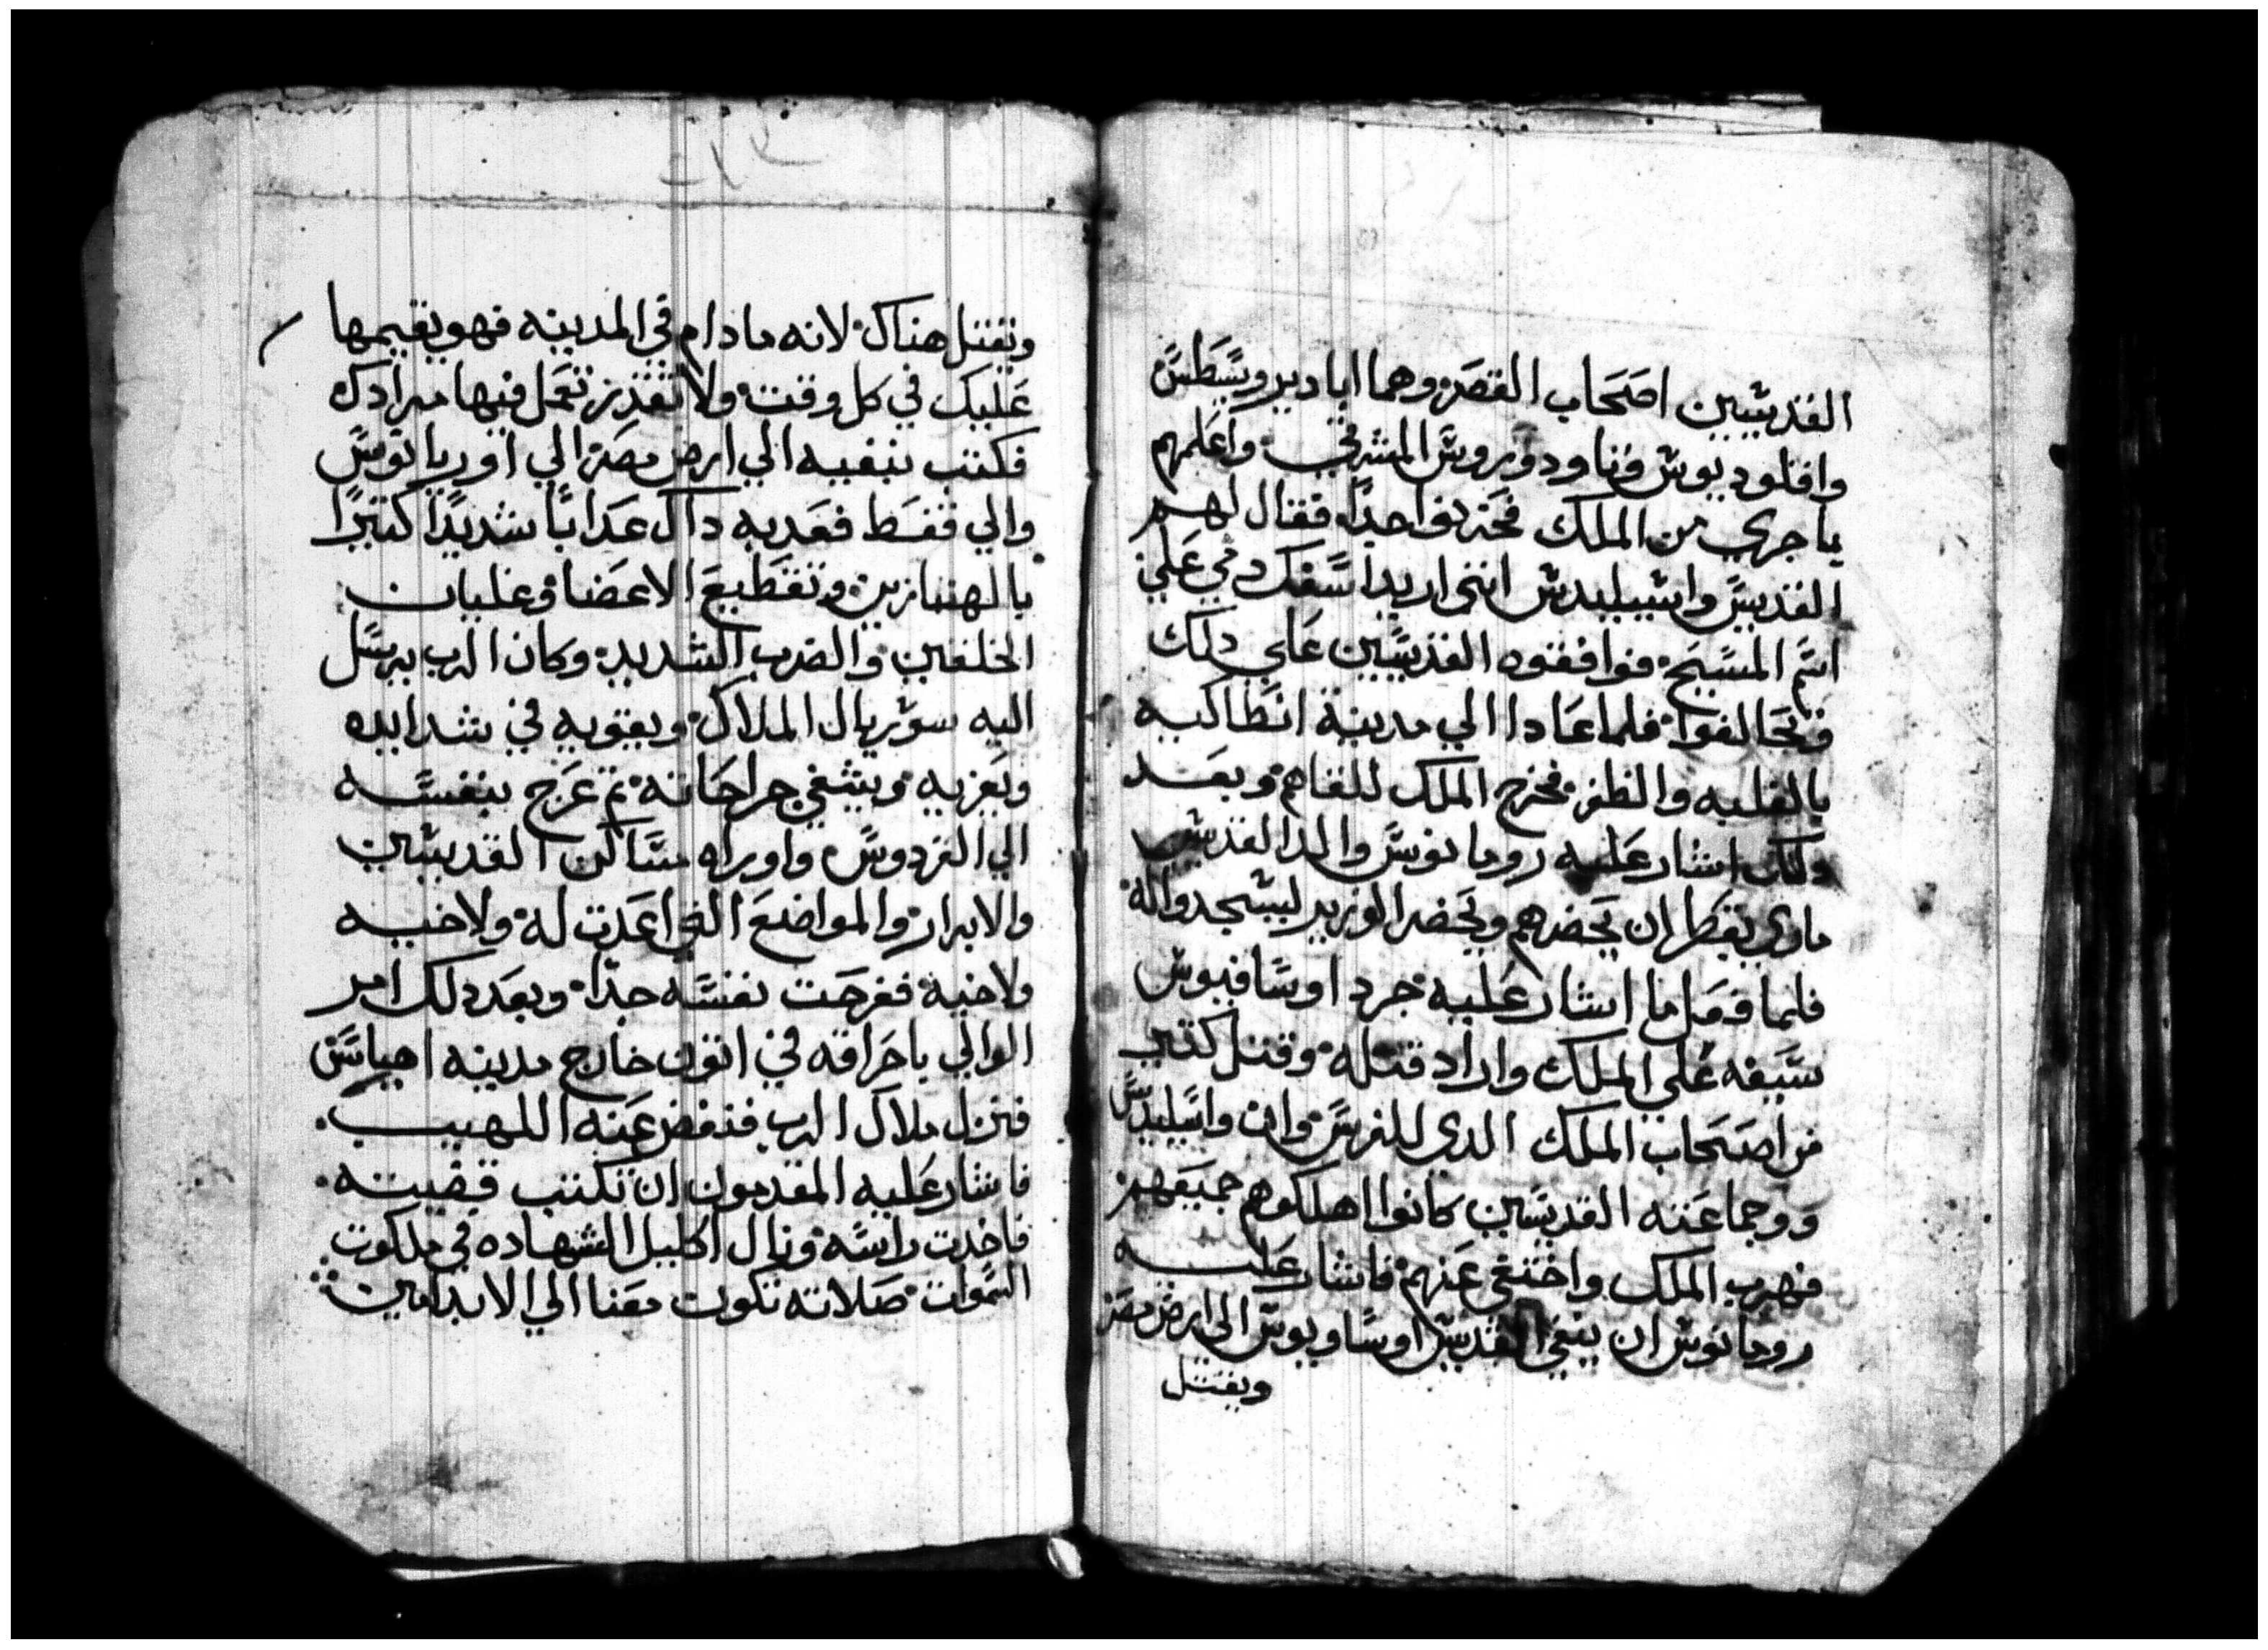 القديسين اصحاب القصر وهما ابادير ويسطس
واقلوديوس وتاودوروس المشرقي واعلمهم
بما جري من الملك فحزنوا جداً فقال لهم
القديس واسيليدس انني اريد اسفك دمي علي
اسم المسيح فوافقوه القديسين علي دلك
وتحالفوا فلما عادا الي مدينة انطاكيه
بالغلبه والظفر فخرج الملك للقاهم وبعد
دلك اشار عليه رومانوس والد القديس
ماري بقطر ان يحضرهم ويحضر الوزير ليسجدوا له
فلما فعل ما اشار عليه جرد اوسافيوس
سيفه علي الملك واراد قتله وقتل كتير
من اصحاب الملك الدي للفرس وان واسيليدس
ووجماعته القديسين كانوا اهلكوهم جميعهم
فهرب الملك واختفي عنهم فاشار عليه
رومانوس ان ينفي القديس اوساويوس الي ارض مصر
ويقتل
ويقتل هناك لانه ما دام في المدينه فهو يقيمها
عليك في كل وقت ولا تقدر تعمل فيها مرادك
فكتب بنفيه الي ارض مصر الي اوريانوس
والي قفط فعدبه داك عداباً شديداً كتيراً
بالهنبازين وتقطيع الاعضا وغليان
الخلقين والضرب الشديد وكان الرب يرسل
اليه سوريال الملاك ويقويه في شدايده
ويعزيه ويشفي جراحاته ثم عرج بنفسه
الي الفردوس واوراه مساكن القديسين
والابرار والمواضع التي اعدت له ولاخيه
ولاخيه ففرحت نفسه جداً وبعد دلك امر
الوالي باحراقه في اتون خارج مدينه اهناس
فنزل ملاك الرب فنفض عنه اللهيب
فاشار عليه المقدمون ان تكتب قضيته
فاخدت راسه ونال اكليل الشهاده في ملكوت
السموات صلاته تكون معنا الي الابد امين